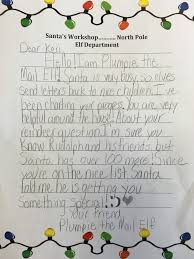 Santa's Workshop.......... North Pole
Elf Department
Dear Keji,
Hello! I am Plumpie the
Mail Elf! Santa is very busy, so elves
send letters back to nice children. I've
been charting your pages. You are very
helpful around the house! About your
reindeer question, I'm sure you
know Rudolph and his friends, but
Santa has over 100 more! Since
you're on the nice list, Santa
told me he is getting you
something special!
Your Friend,
Plumpie the Mail Elf